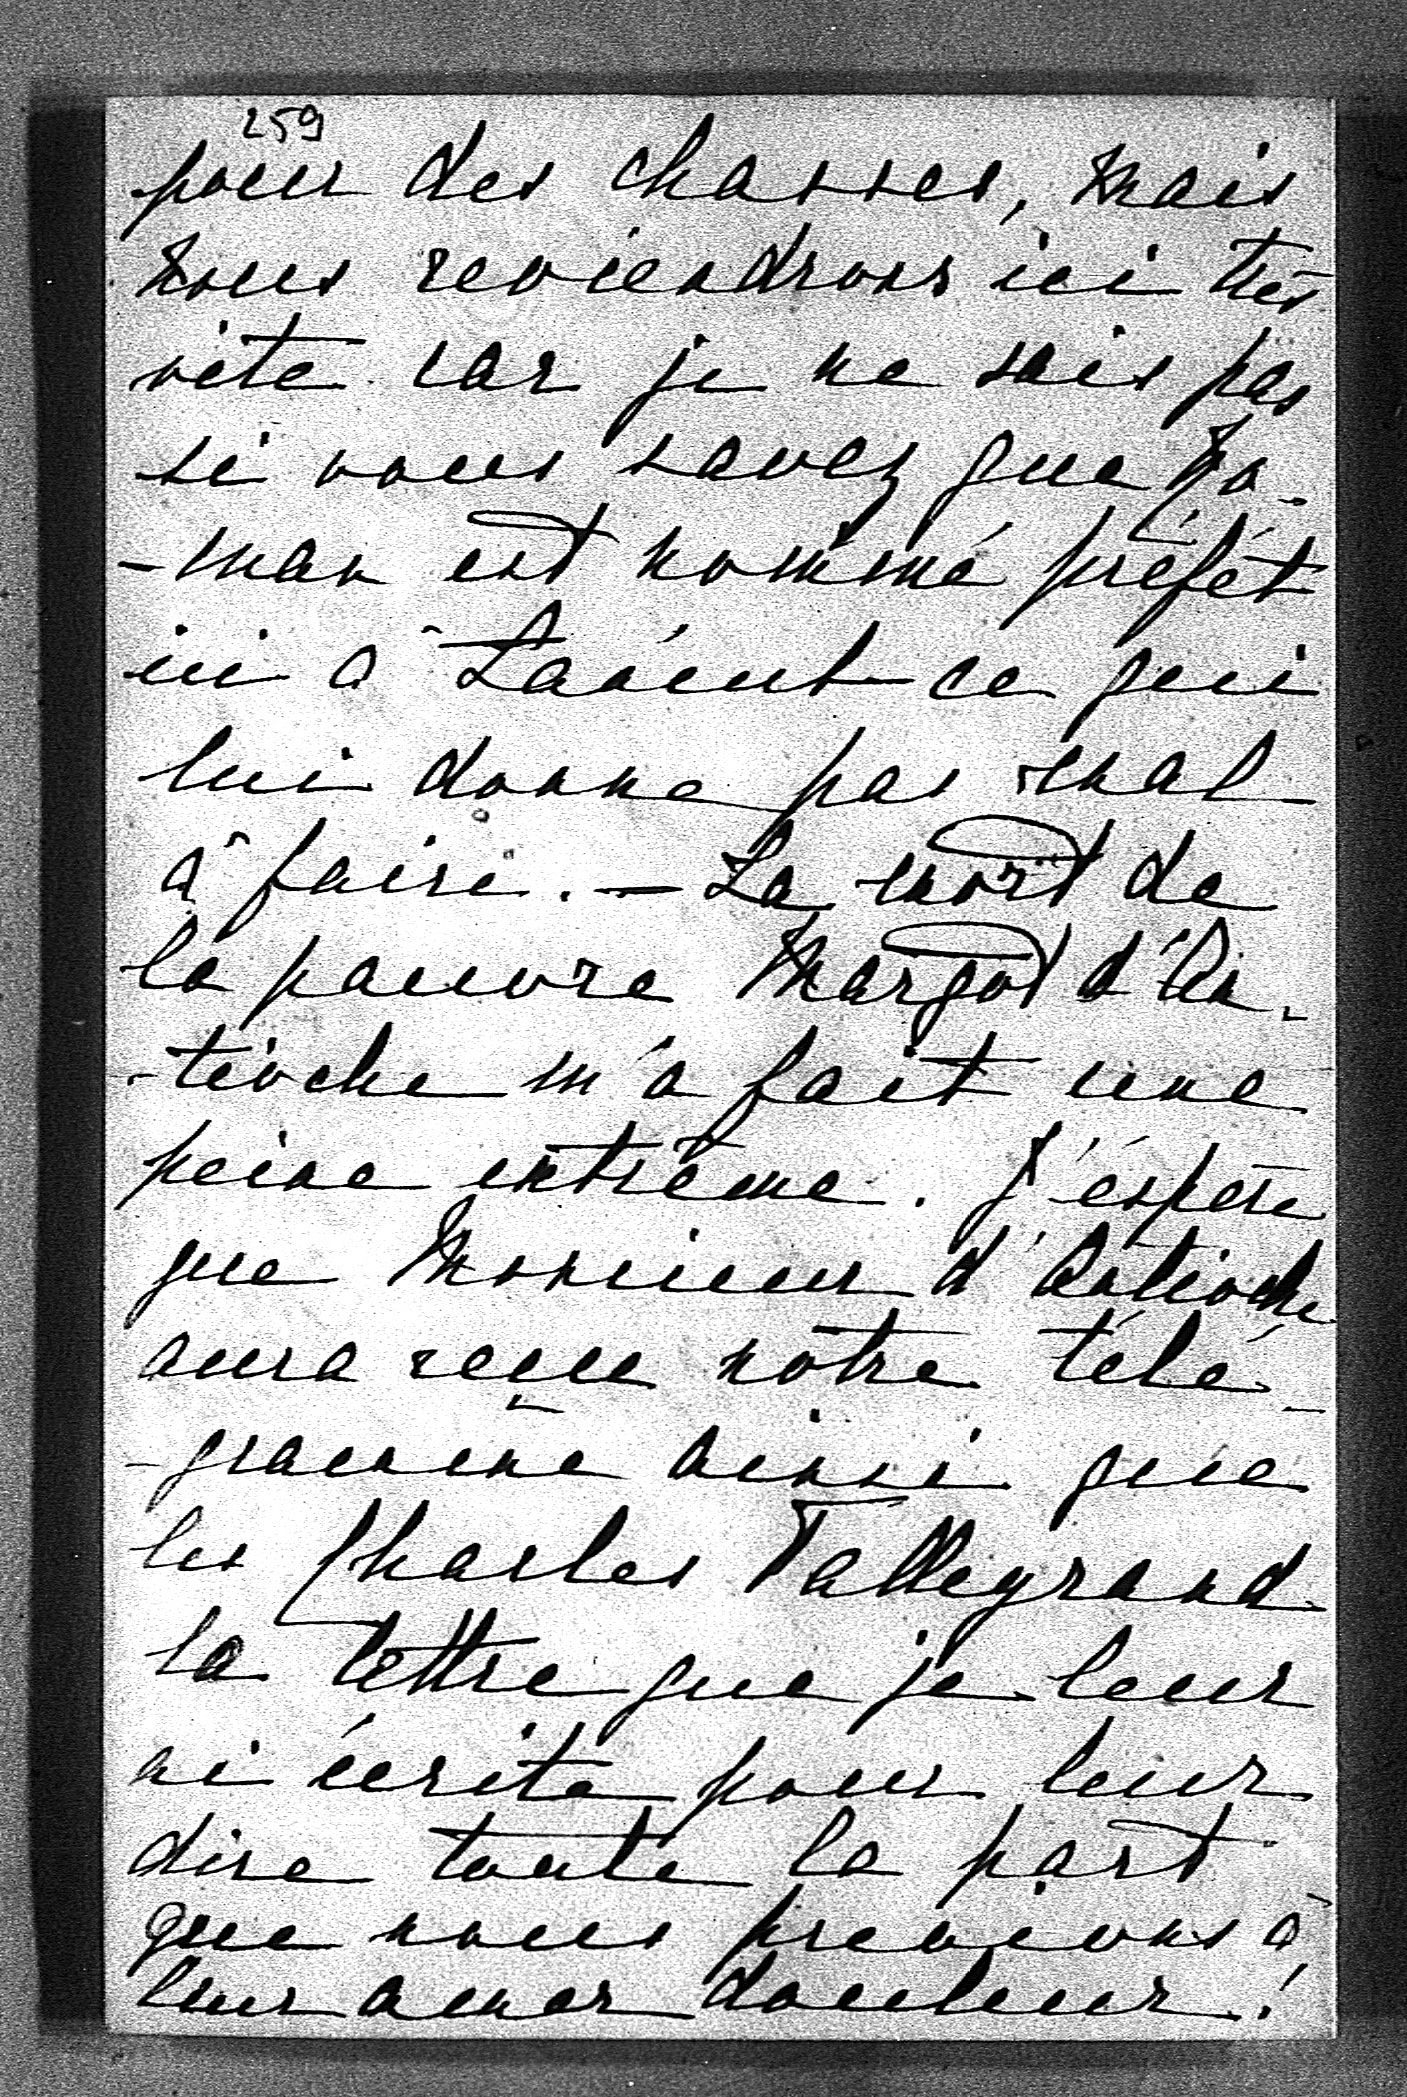 259
pour des chasses, mais
nous reviendrons ici très
vite car je ne sais pas
si vous savez que Ro-
-man est nommé préfét
ici à Laṅcut ce qui
lui donne pas mal
à faire. — La mort de
la pauvre Margot d'An-
-tioche m'a fait une
peine extrême. J'éspère
que Monsieur d'Antioche
aura reçue notre télé-
-gramme ainsi que
les Charles Talleyrand
la lettre que je leur
ai écrite pour leur
dire toute la part
que nous prenions à
leur amer douleur !